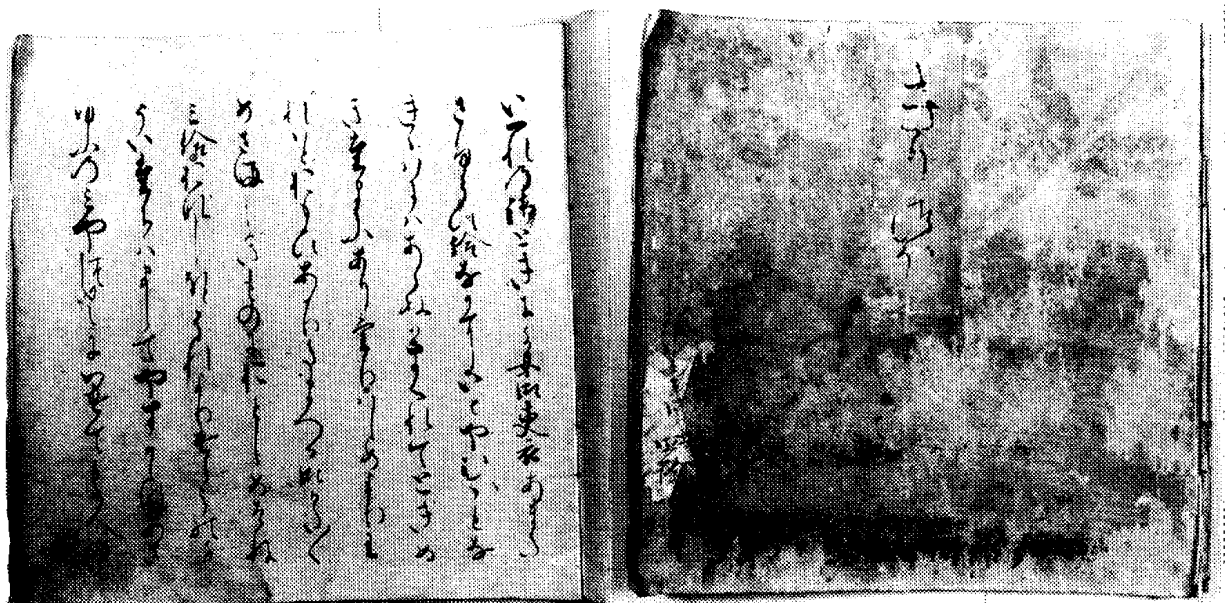 きりつほ
いつれの御ときにか女御更衣あまた
さふらひ給なかにいとやむことな
きゝはにはあらぬかすくれてときめ
き給ありけりはしめよりわ
れはとおもひあかりたまへる御かた〱
めさましきものにおとしめそね
み給おなしほとそれより下らうのか
ういたちはましてやすからす
ゆふのみやつかへにつけても